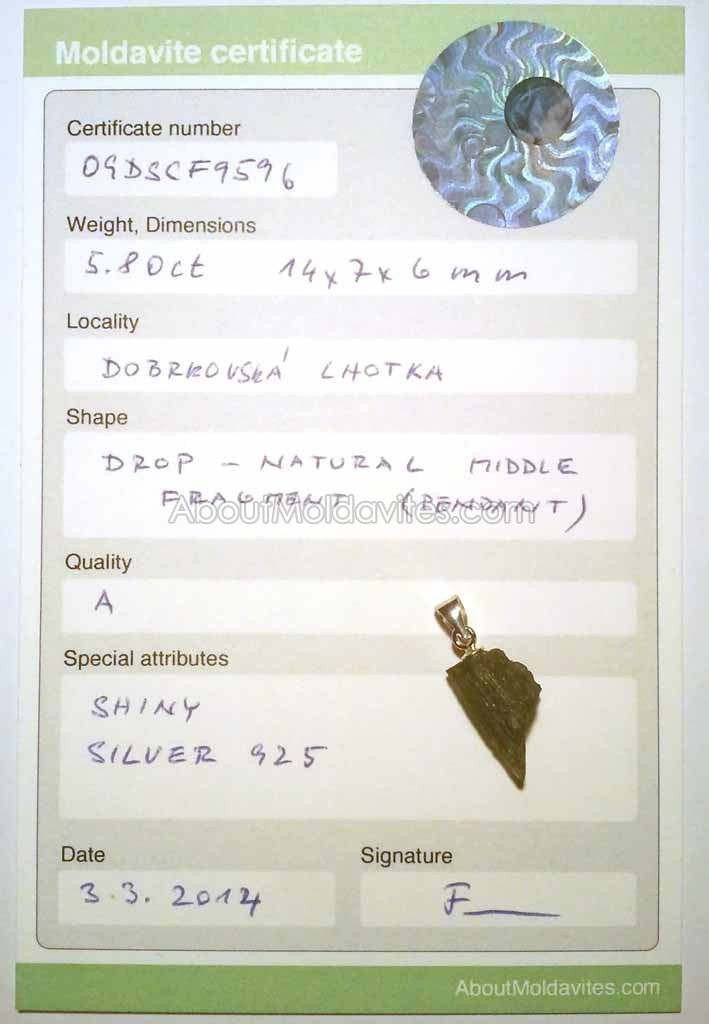 Moldavite certificate
Certificate number
09DSCF9596
Weight, Dimensions
5.80ct 14x7x6 mm
Locality
DOBRKOVSKÁ LHOTKA
Shape
DROP - NATURAL MIDDLE
FRAGMENT (PENDANT)
AboutMoldavites.com
Quality
A
Special attributes
SHINY
SILVER 925
Date
Signature
3.3. 2014
F
AboutMoldavites.com